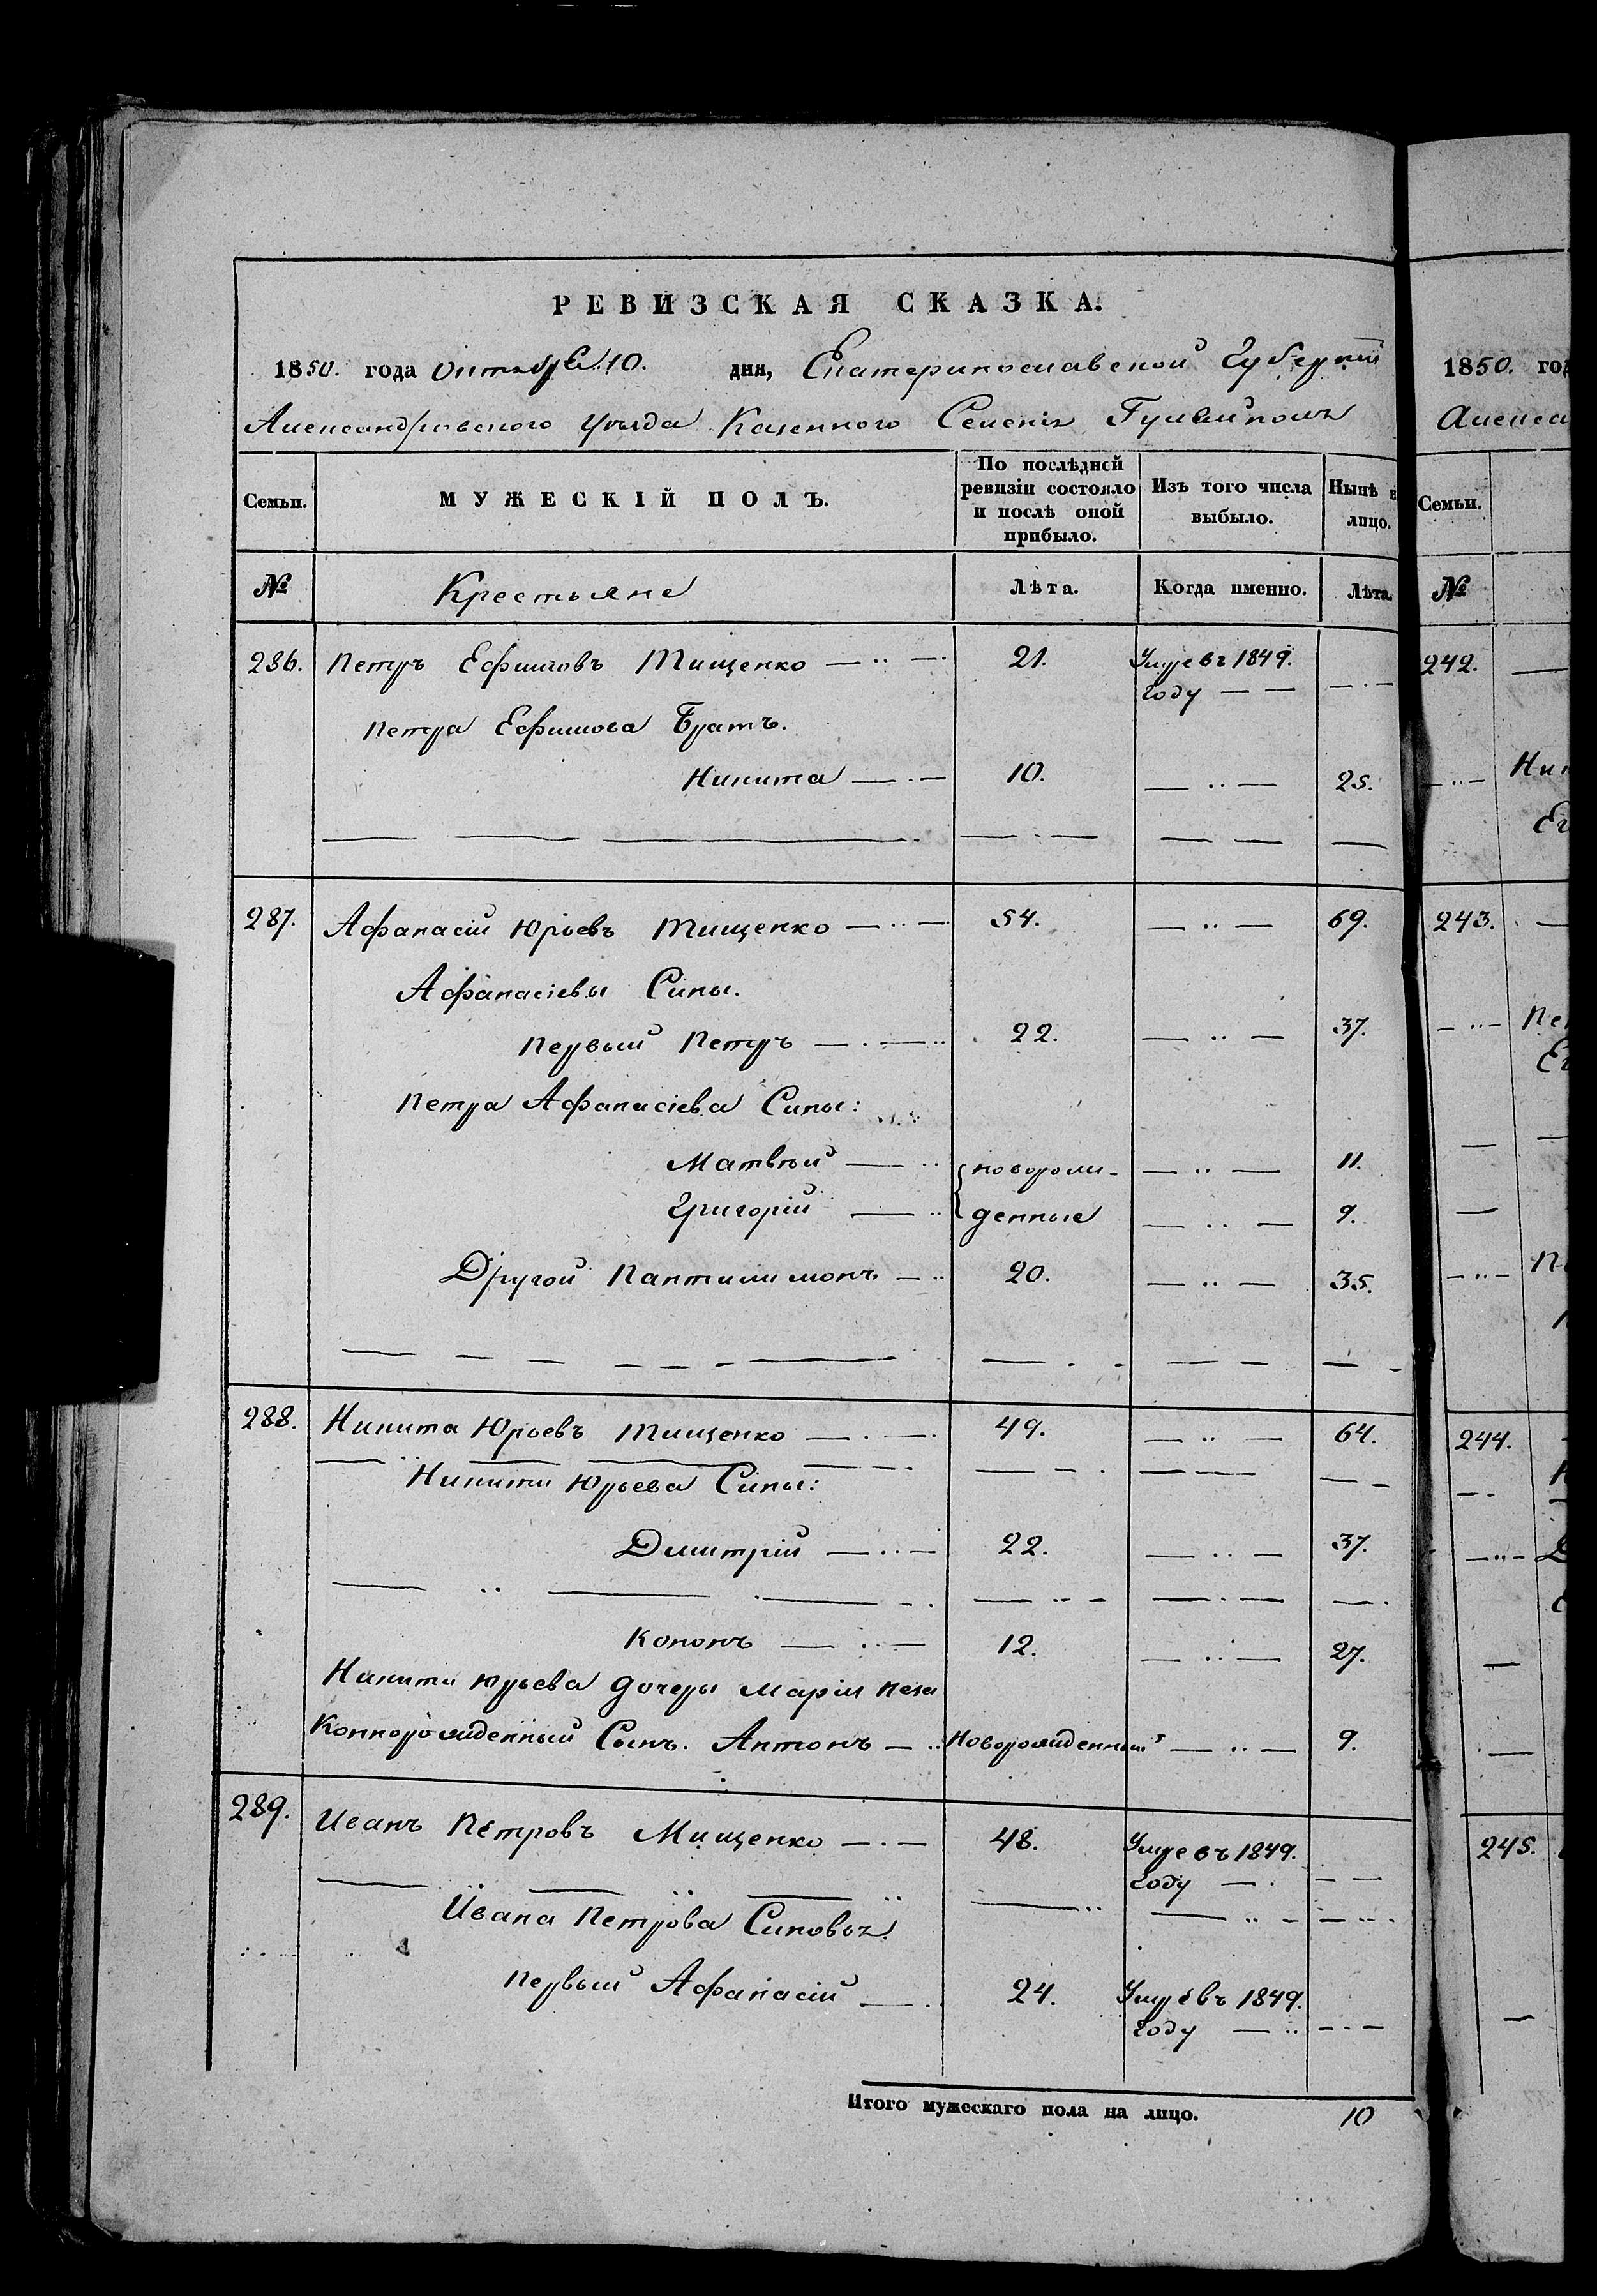 РЕВИЗСКАЯ СКАЗКА.
1850. года Октября 10. дня, Екатеринославской Губерніи
Александровского уѣзда Казенного Селенія Гуляйполя
Семьи.
МУЖЕСКІЙ ПОЛЪ.
По послѣдней ревизіи состояло и послѣ оной прибыло.
Изъ того числа выбыло.
Нынѣ в лицо.
№
Крестьяне
Лѣта.
Когда именно.
Лѣта.
286. Петръ Ефимовъ Тищенко 21. Умре въ 1849.
году
Петра Ефимова Братъ.
Никита 10. 25.
287. Афанасій Юрьевъ Тищенко 54. 69.
Афанасіевы Сины.
первый Петръ 22. 37.
Петра Афанасіева Сины:
Матвѣй новорож- 11.
Григорій денные 9.
Другой Пантилимонъ 20. 35.
288. Никита Юрьевъ Тищенко 49. 64.
Никиты Юрьева Сины:
Дмитрій 22. 37.
Кононъ 12. 27.
Никиты Юрьева дочеры Маріи неза
коннорожденный Сынъ. Антонъ Новорожденный 9.
289. Иванъ Петровъ Мищенко 48. Умре въ 1849.
году
Ивана Петрова Синовья.
первый Афанасій 24. Умре въ 1849.
году
Итого мужескаго пола на лицо. 10
1850. год
Семьи.
№
242.
243.
244.
245.